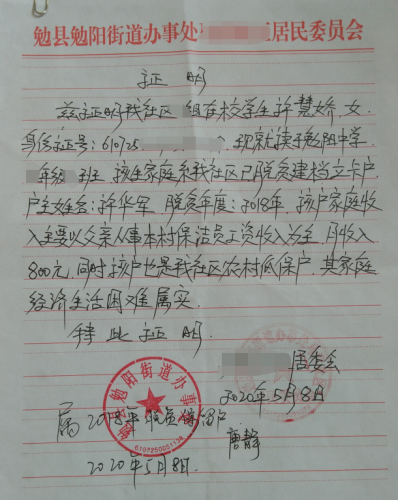 勉县勉阳街道办事处 居民委员会
证 明
兹证明我社区 组在校学生许慧娇,女,
身份证号:610725 ,现就读于勉阳中学
年级 班。该生家庭系我社区已脱贫建档立卡户
户主姓名:许华军,脱贫年度:2018年,该户家庭收
入主要以父亲从事本村保洁员工资收入为主,月收入
800元,同时该户也是我社区农村低保户,其家庭
经济生活困难属实。
特 此 证 明。
居委会
2020年5月8日
勉县勉阳街道办事处
6107250001136
属2018年脱贫 户
唐静
2020年5月8日.